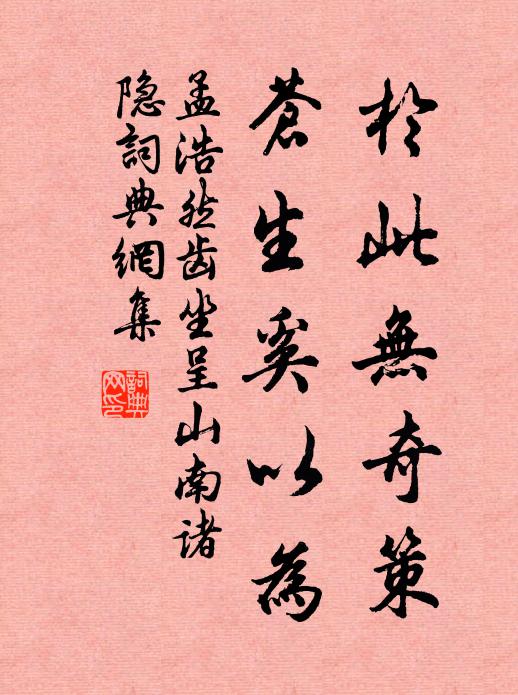 於此無奇策
蒼生奚以為
孟浩然齿坐呈山南诸
隐詞典網集
詞典
网印